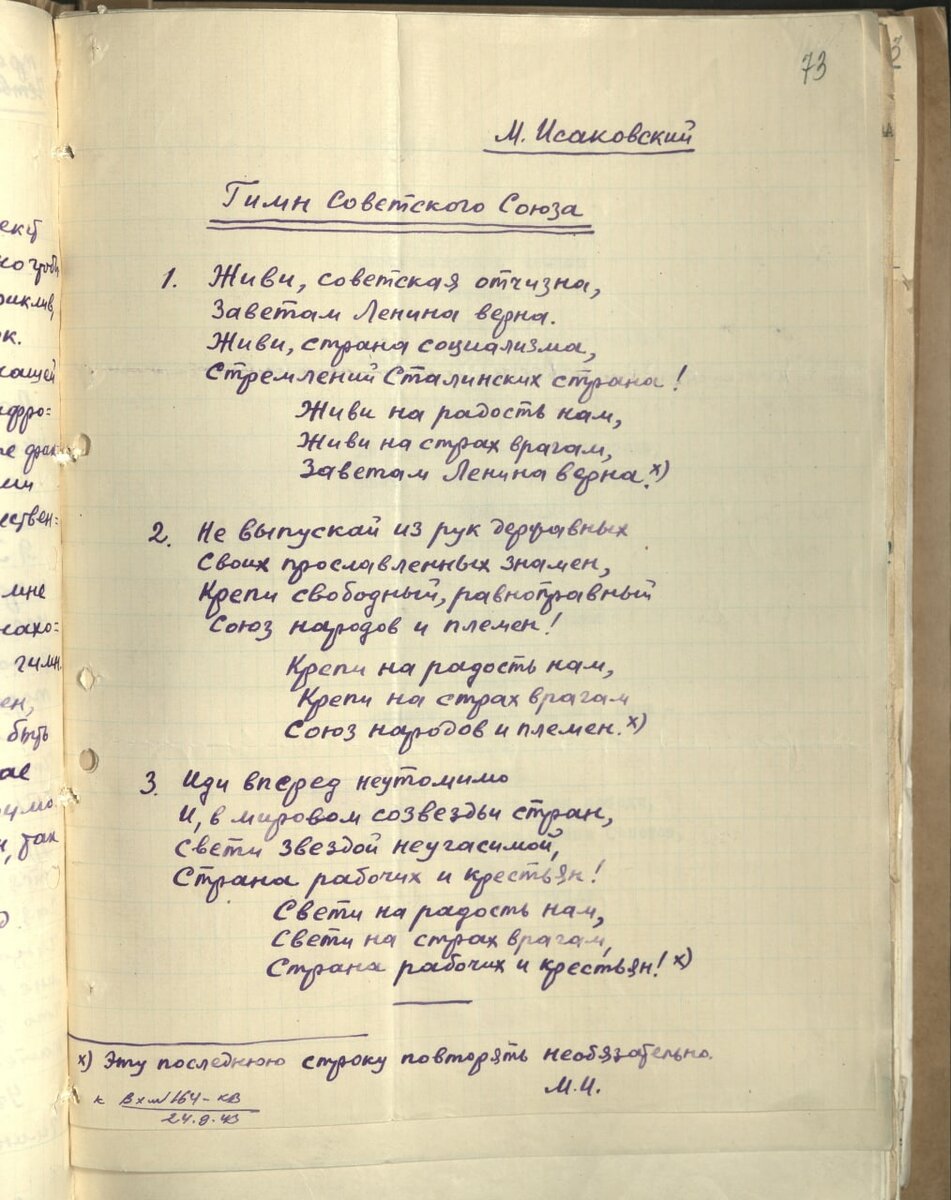 73
М. Исаковский
Гимн Советского Союза
1. Живи, советская отчизна,
Заветам Ленина верна.
Живи, страна социализма,
Стремлений Сталинских страна!
Живи на радость нам,
Живи на страх врагам,
Заветам Ленина верна. х)
2. Не выпускай из рук державных
Своих прославленных знамен,
Крепи свободный, равноправный
Союз народов и племен!
Крепи на радость нам,
Крепи на страх врагам
Союз народов и племен. х)
3. Иди вперед неутомимо
И, в мировом созвездьи стран,
Свети звездой неугасимой,
Страна рабочих и крестьян!
Свети на радость нам,
Свети на страх врагам,
Страна рабочих и крестьян! х)
х) Эту последнюю строку повторять необязательно.
М.И.
к Вх № 164-кв
24.9.43
мне
гимн
быть